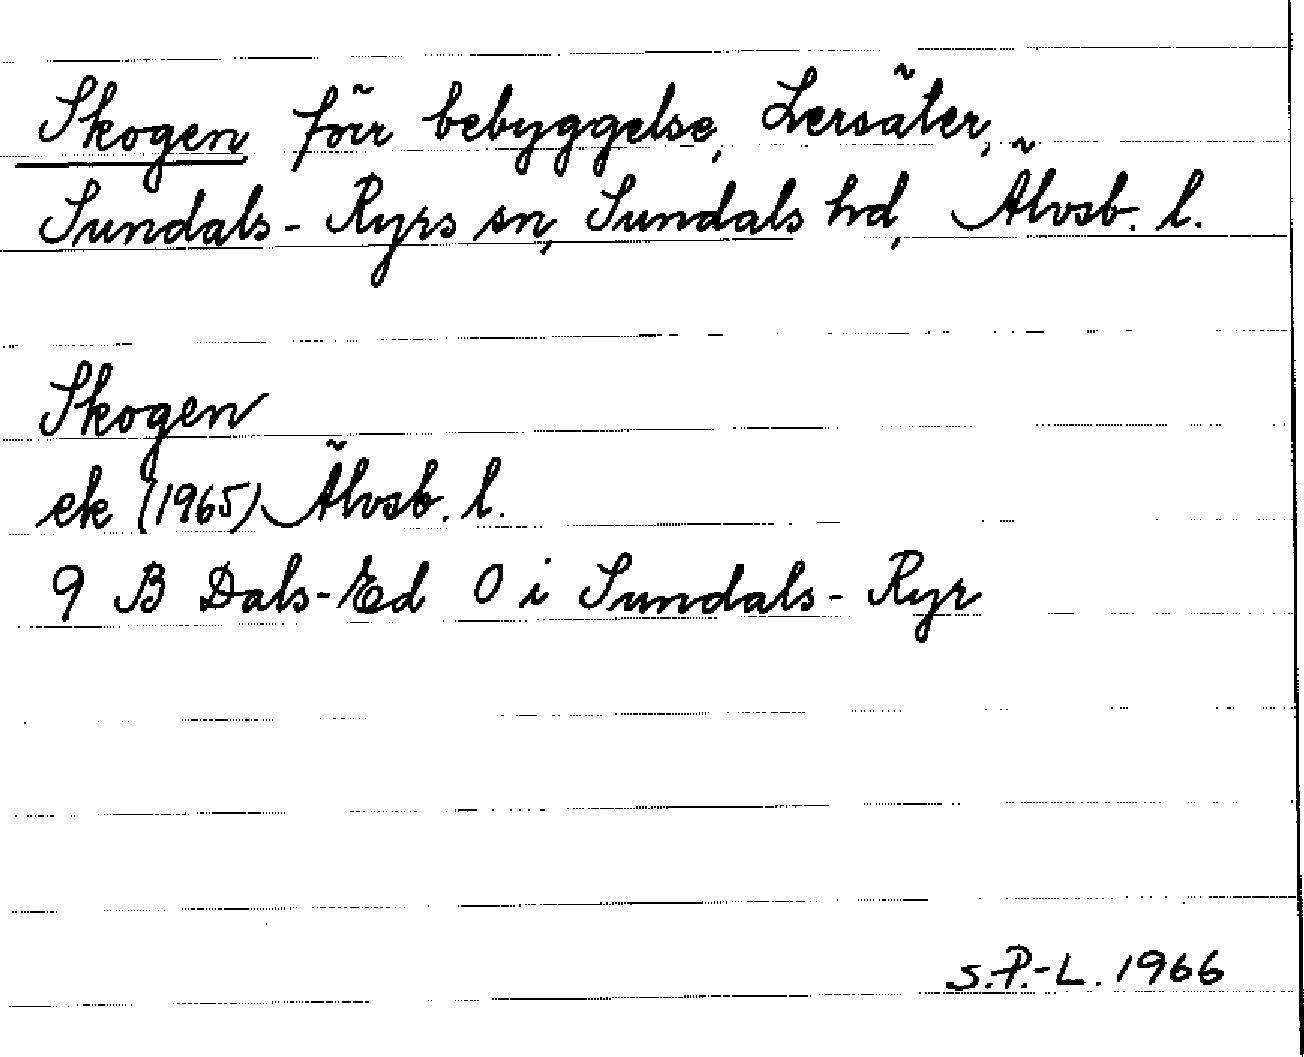 Skogen förr bebyggelse, Lersäter,
Sundals-Ryrs sn, Sundals hd, Älvsb. l.
Skogen
ek (1965) Älvsb. l.
9 B Dals-Ed O i Sundals-Ryr
S.P.-L. 1966